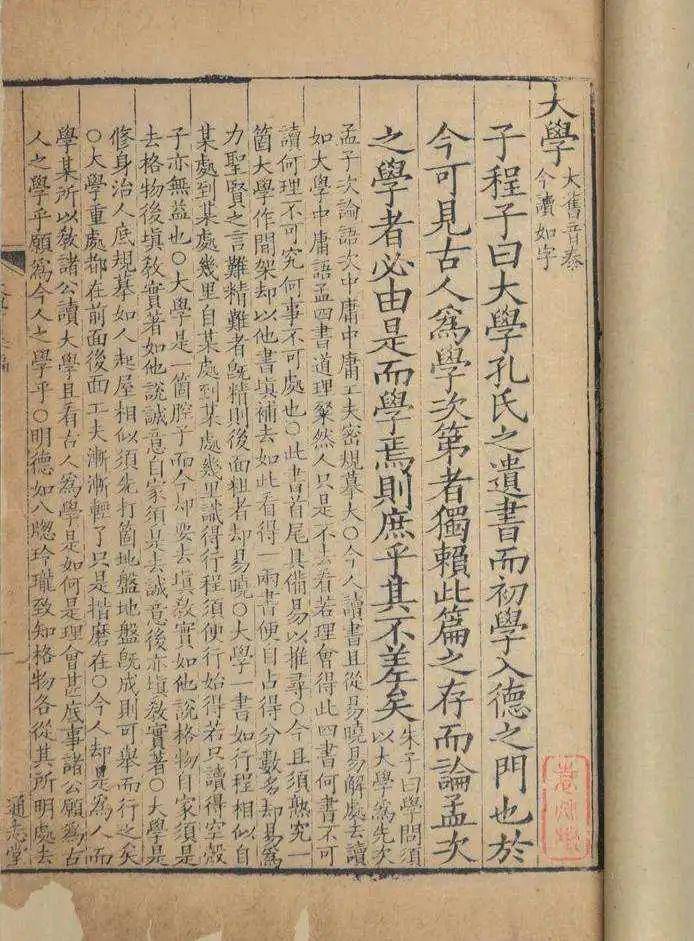 大學
大舊音泰
今讀如字
子程子曰大學孔氏之遺書而初學入德之門也於
今可見古人爲學次第者獨賴此篇之存而論孟次
之學者必由是而學焉則庶乎其不差矣
朱子曰學問須
以大學爲先次
孟子次論語次中庸中庸工夫密規摹大○今人讀書且從易曉易解處去讀
如大學中庸語孟四書道理粲然人只是不去看若理會得此四書何書不可
讀何理不可究何事不可處也○此書首尾具備易以推尋○今且須熟究一
箇大學作間架却以他書塡補去如此看得一兩書便自占得分數多却易爲
力聖賢之言難精難者旣精則後面粗者却易曉○大學一書如行程相似自
某處到某處幾里自某處到某處幾里識得行程須便行始得若只讀得空殼
子亦無益也○大學是一箇腔子而今却要去塡敎實如他說格物自家須是
去格物後塡敎實著如他說誠意自家須是去誠意後亦塡敎實著○大學是
修身治人底規摹如人起屋相似須先打箇地盤地盤旣成則可舉而行之矣
○大學重處都在前面後面工夫漸漸輕了只是揩磨在○今人却是爲人而
學某所以敎諸公讀大學且看古人爲學是如何是理會甚底事諸公願爲古
人之學乎願爲今人之學乎○明德如八牕玲瓏致知格物各從其所明處去
通志堂